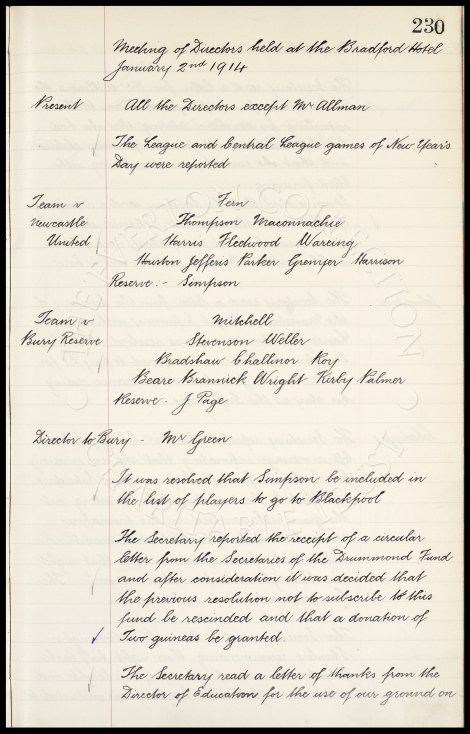 230
Meeting of Directors held at the Bradford Hotel
January 2nd 1914
Present All the Directors except Mr Allman
The League and Central League games of New Year's
Day were reported
Team v Fern
Newcastle Thompson Maconnachie
United Harris Fleetwood Wareing
Houston Jefferis Parker Grenyer Harrison
Reserve :- Simpson
Team v Mitchell
Bury Reserve Stevenson Weller
Bradshaw Challinor Roy
Beare Brannick Wright Kirby Palmer
Reserve - J. Page
Director to Bury - Mr Green
It was resolved that Simpson be included in
the list of players to go to Blackpool
The Secretary reported the receipt of a circular
letter from the Secretaries of the Drummond Fund
and after consideration it was decided that
the previous resolution not to subscribe to this
fund be rescinded and that a donation of
Two guineas be granted.
The Secretary read a letter of thanks from the
Director of Education for the use of our ground on